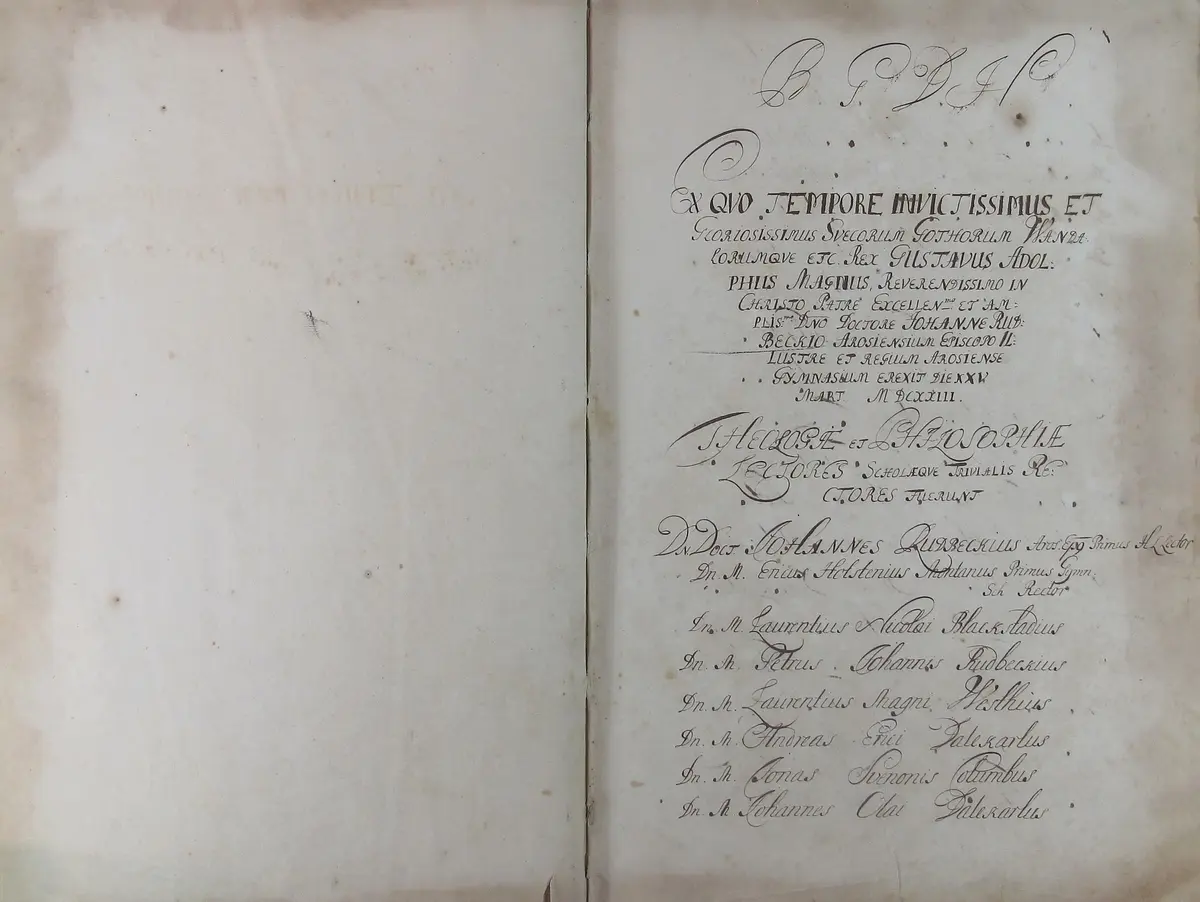 B. G. D. J S.
EX QVO TEMPORE INVICTISSIMUS ET
GLORIOSISSIMUS SVECORUM GOTHORUM WANDA-
LORUMQVE ETC. REX GUSTAVUS ADOL:
PHUS MAGNUS, REVERENDISSIMO IN
CHRISTO PATRE EXCELLEN:mo ET AM:
PLIS:mo DNO DOCTORE JOHANNE RUD:
BECKIO AROSIENSIUM EPISCOPO IL:
LUSTRE ET REGIUM AROSIENSE
GYMNASIUM EREXIT DIE XXV
MART M DCXXIII.
THEOLOGIÆ ET PHILOSOPHIÆ
LECTORES SCHOLÆQVE TRIVIALIS RE:
CTORES FUERUNT
DN DOCT JOHANNES RUDBECKIUS Aros. Epq Primus Lector
Dn. M. Ericus Holstenius Montanus Primus Gymn:
Sch Rector
Dn. M. Laurentius Nicolai Blackstadius
Dn. M. Petrus Johannis Rudbeckius
Dn. M. Laurentius Magni Westhius
Dn. M. Andreas Erici Dalekarlus
Dn. M. Jonas Svenonis Columbus
Dn. M Johannes Olai Dalekarlus